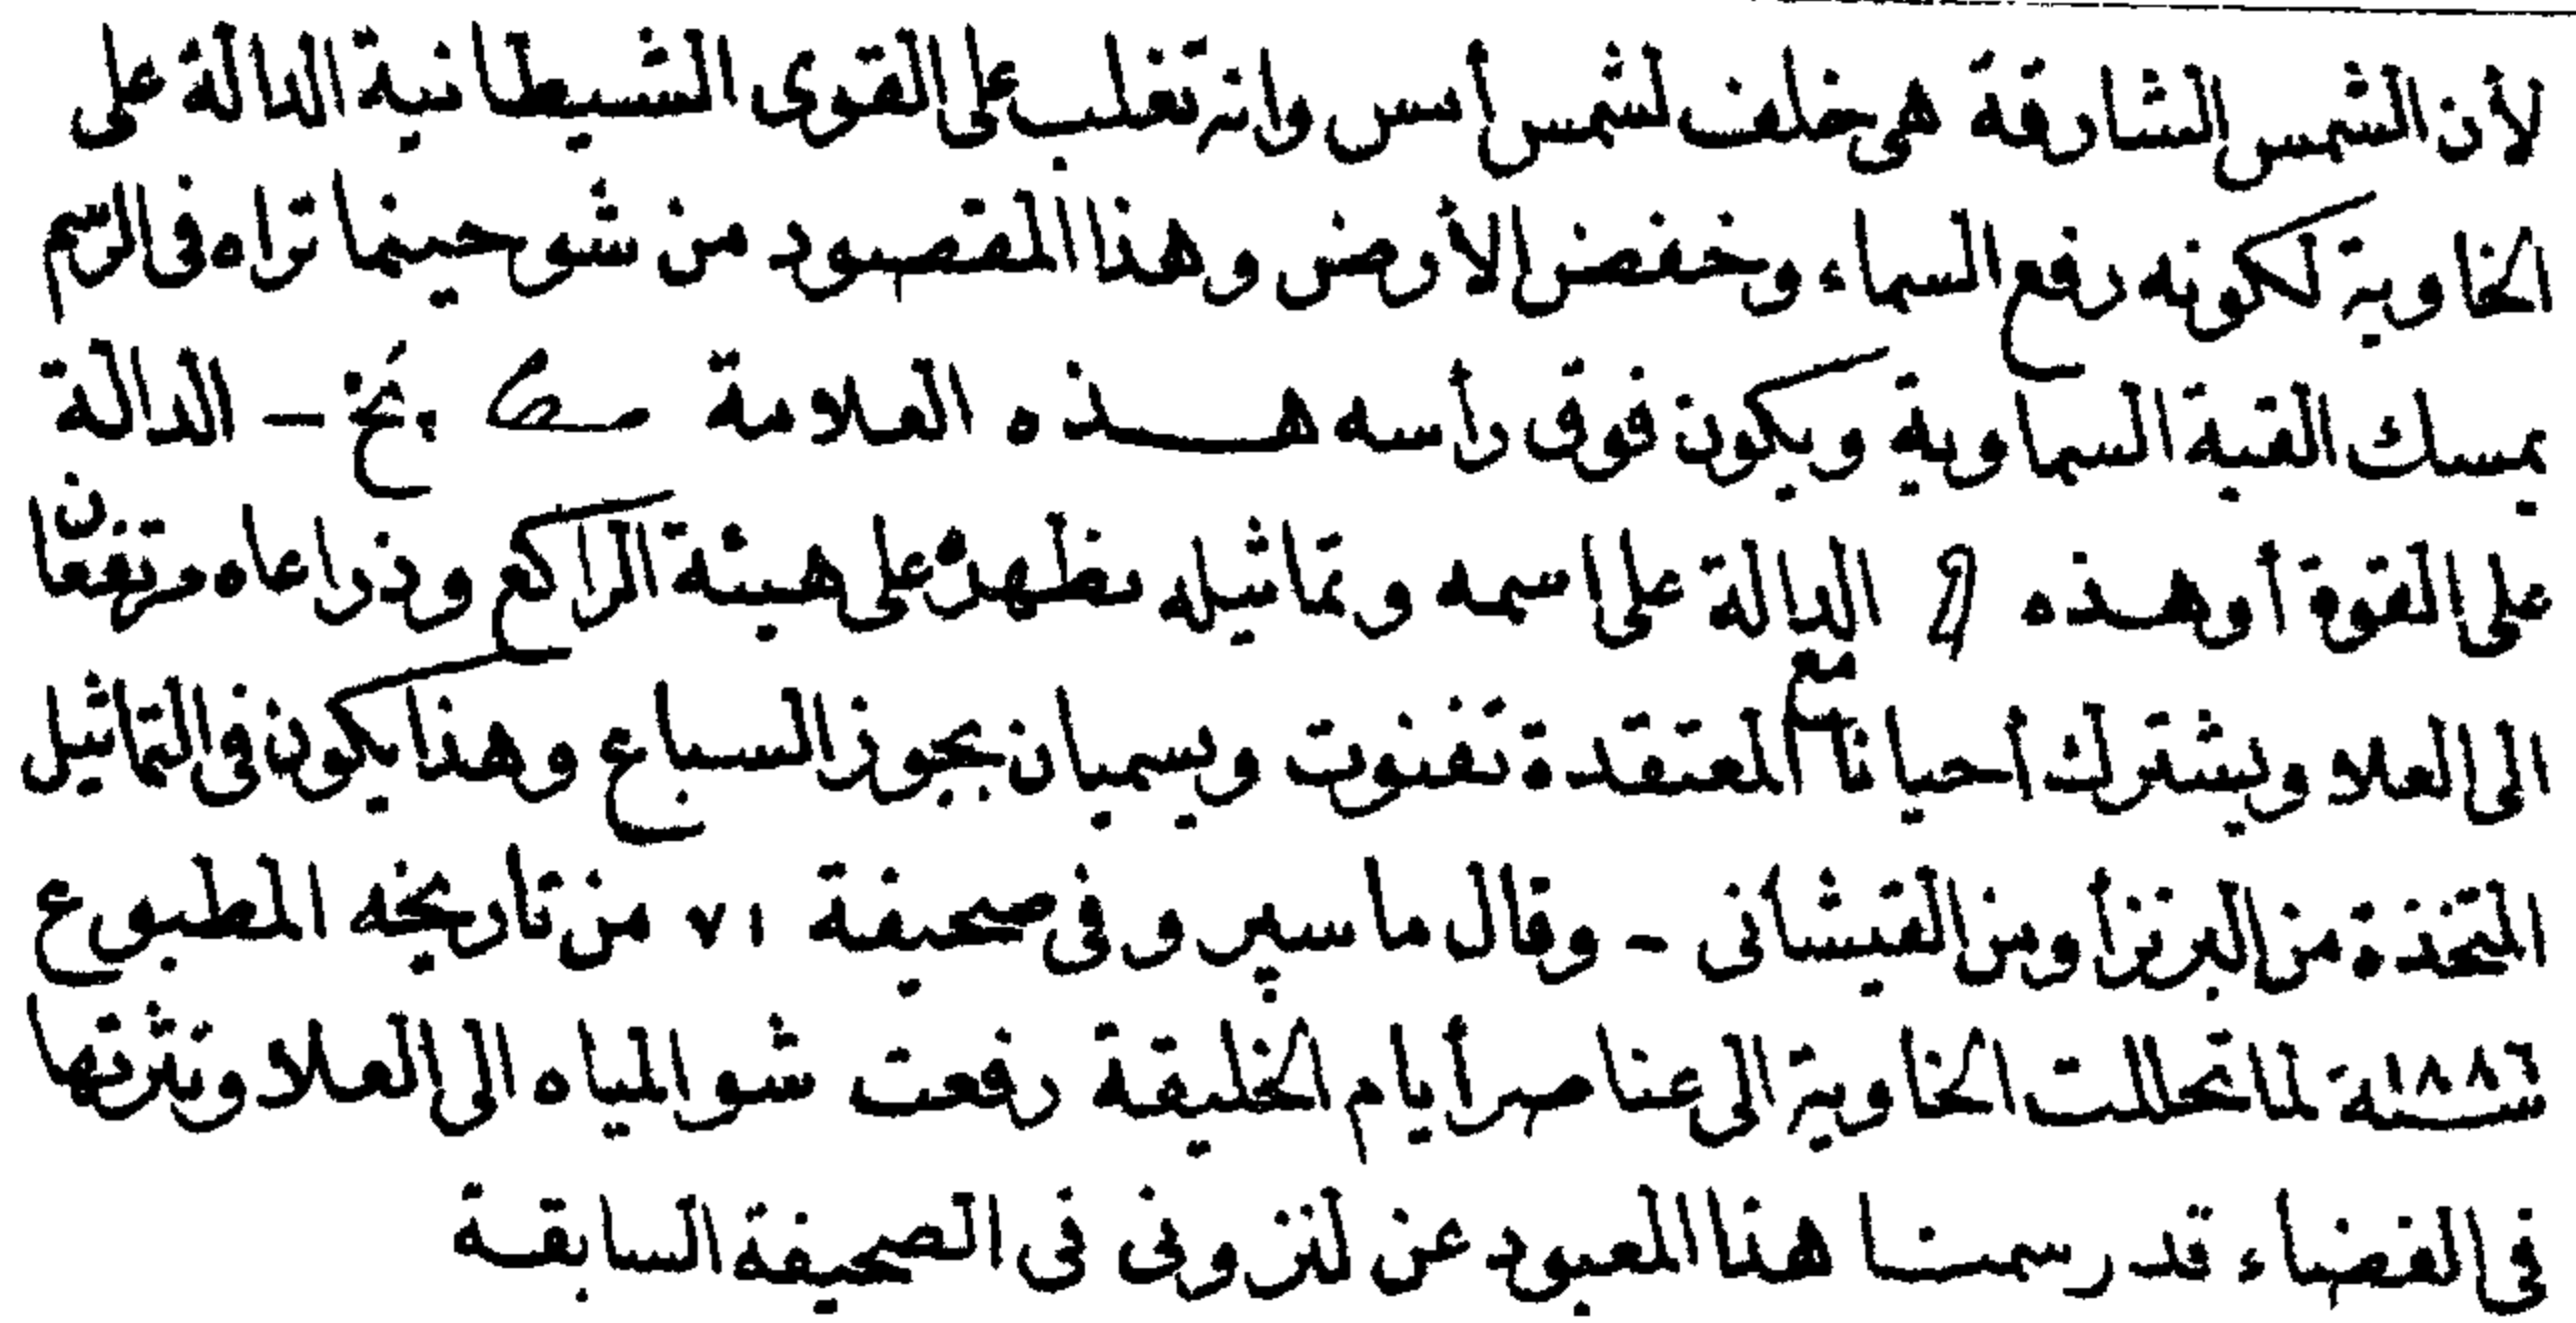 لأن الشمس الشارقة هى خلف لشمس أمس وانه تغلب على القوى الشيطانية الدالة على
الخاوية لكونه رفع السماء وخفض الأرض وهذا المقصود من شو حينما تراه فى الرسم
يمسك القبة السماوية ويكون فوق رأسه هذه العلامة پخ - الدالة
على القوة أو هذه الدالة على اسمه وتماثيله تظهره على هيئة الراكع وذراعاه مرتفعتان
الى العلا ويشترك أحيانا مع المعتقدة تفنوت ويسميان بجوز السباع وهذا يكون فى التماثيل
المتخذة من البرنز أو من القيشانى - وقال ماسپرو فى صحيفة ٧١ من تاريخه المطبوع
سنة ١٨٨٦ لما تحللت الخاوية الى عناصر أيام الخليقة رفعت شو المياه الى العلا ونثرتها
فى الفضاء قد رسمنا هذا المعبود عن لنزونى فى الصحيفة السابقة